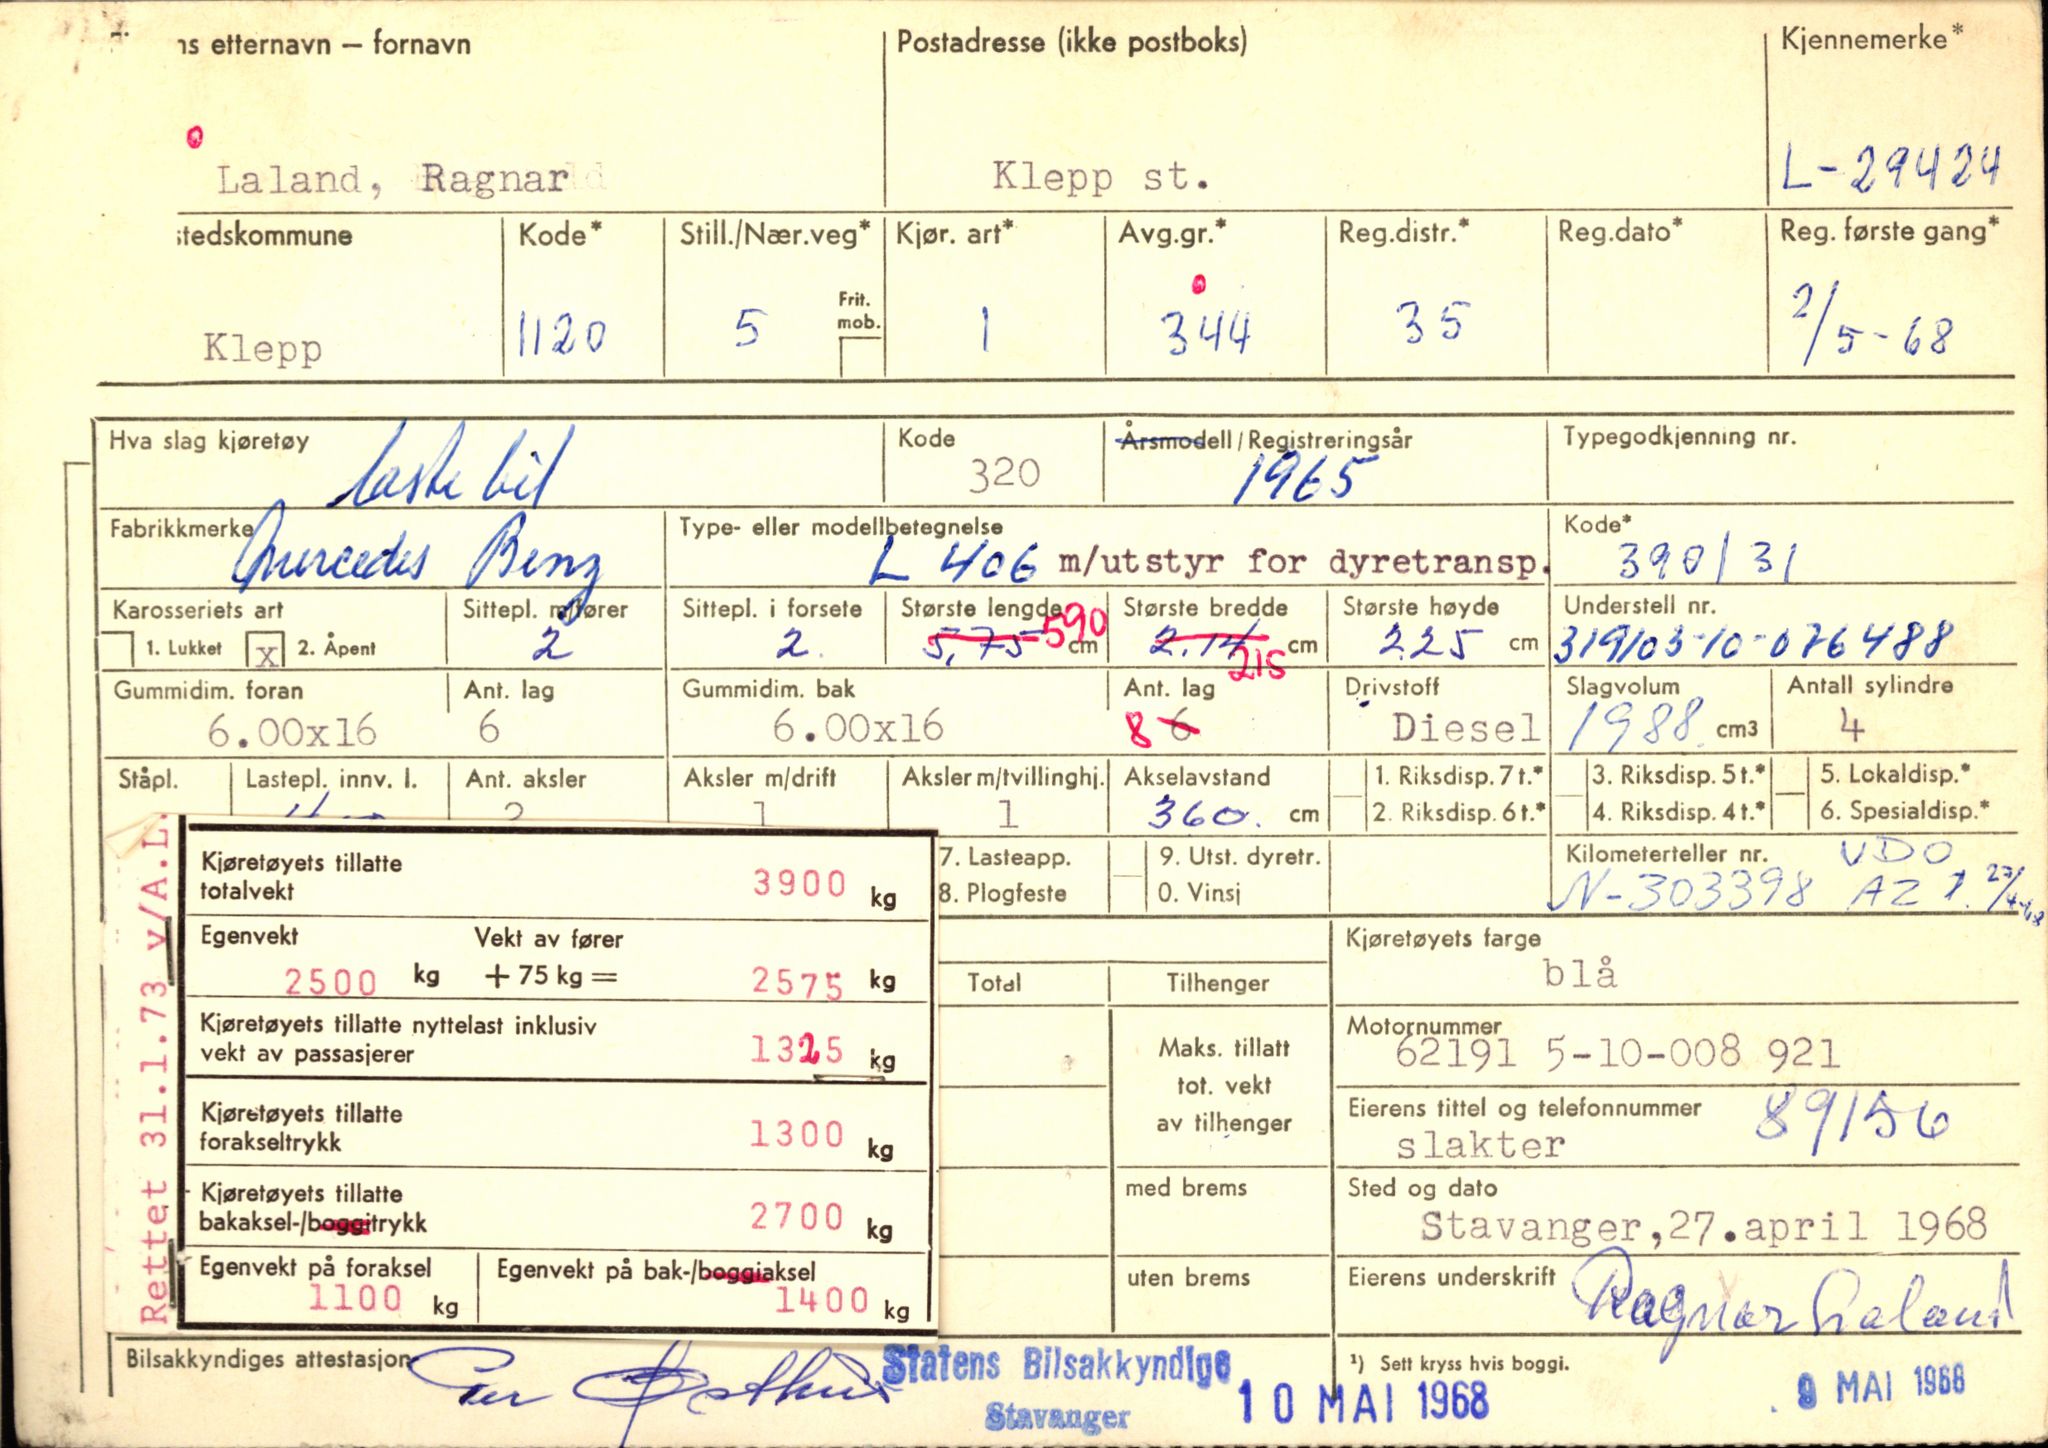 ns etternavn – fornavn Postadresse (ikke postboks) Kjennemerke*
Laland, Ragnar Klepp st. L-29424
stedskommune Kode* Still./Nær.veg* Kjør. art* Avg.gr.* Reg.distr.* Reg.dato* Reg. første gang*
Frit. mob.
Klepp 1120 5 1 344 35 2/5-68
Hva slag kjøretøy Kode Årsmodell/Registreringsår Typegodkjenning nr.
lastebil 320 1965
Fabrikkmerke Type- eller modellbetegnelse Kode*
Mercedes Benz L 406 m/utstyr for dyretransp. 390/31
Karosseriets art Sittepl. m/fører Sittepl. i forsete Største lengde Største bredde Største høyde Understell nr.
1. Lukket x 2. Åpent 2 2. 5,75 590 cm 2.14 215 cm 225 cm 319103-10-076488
Gummidim. foran Ant. lag Gummidim. bak Ant. lag Drivstoff Slagvolum Antall sylindre
6.00x16 6 6.00x16 8 6 Diesel 1988 cm3 4
Ståpl. Lastepl. innv. l. Ant. aksler Aksler m/drift Aksler m/tvillinghj. Akselavstand 1. Riksdisp. 7 t.* 3. Riksdisp. 5 t.* 5. Lokaldisp.*
2 1 1 360. cm 2. Riksdisp. 6 t.* 4. Riksdisp. 4 t.* 6. Spesialdisp.*
7. Lasteapp. 9. Utst. dyretr. Kilometerteller nr. VDO
8. Plogfeste 0. Vinsj N-303398 AZ 1. 27/4-68
Rettet 31.1.73 v/A.L.
Kjøretøyets tillatte
totalvekt 3900 kg
Egenvekt Vekt av fører
2500 kg + 75 kg = 2575 kg
Kjøretøyets tillatte nyttelast inklusiv
vekt av passasjerer 1325 kg
Kjøretøyets tillatte
forakseltrykk 1300 kg
Kjøretøyets tillatte
bakaksel-/boggitrykk 2700 kg
Egenvekt på foraksel Egenvekt på bak-/boggiaksel
1100 kg 1400 kg
Total Tilhenger
Maks. tillatt
tot. vekt
av tilhenger
med brems
uten brems
Kjøretøyets farge
blå
Motornummer
62191 5-10-008 921
Eierens tittel og telefonnummer
slakter 89156
Sted og dato
Stavanger,27.april 1968
Eierens underskrift Ragnar Laland
Bilsakkyndiges attestasjon
Statens Bilsakkyndige
Stavanger
10 MAI 1968
¹) Sett kryss hvis boggi.
9 MAI 1968